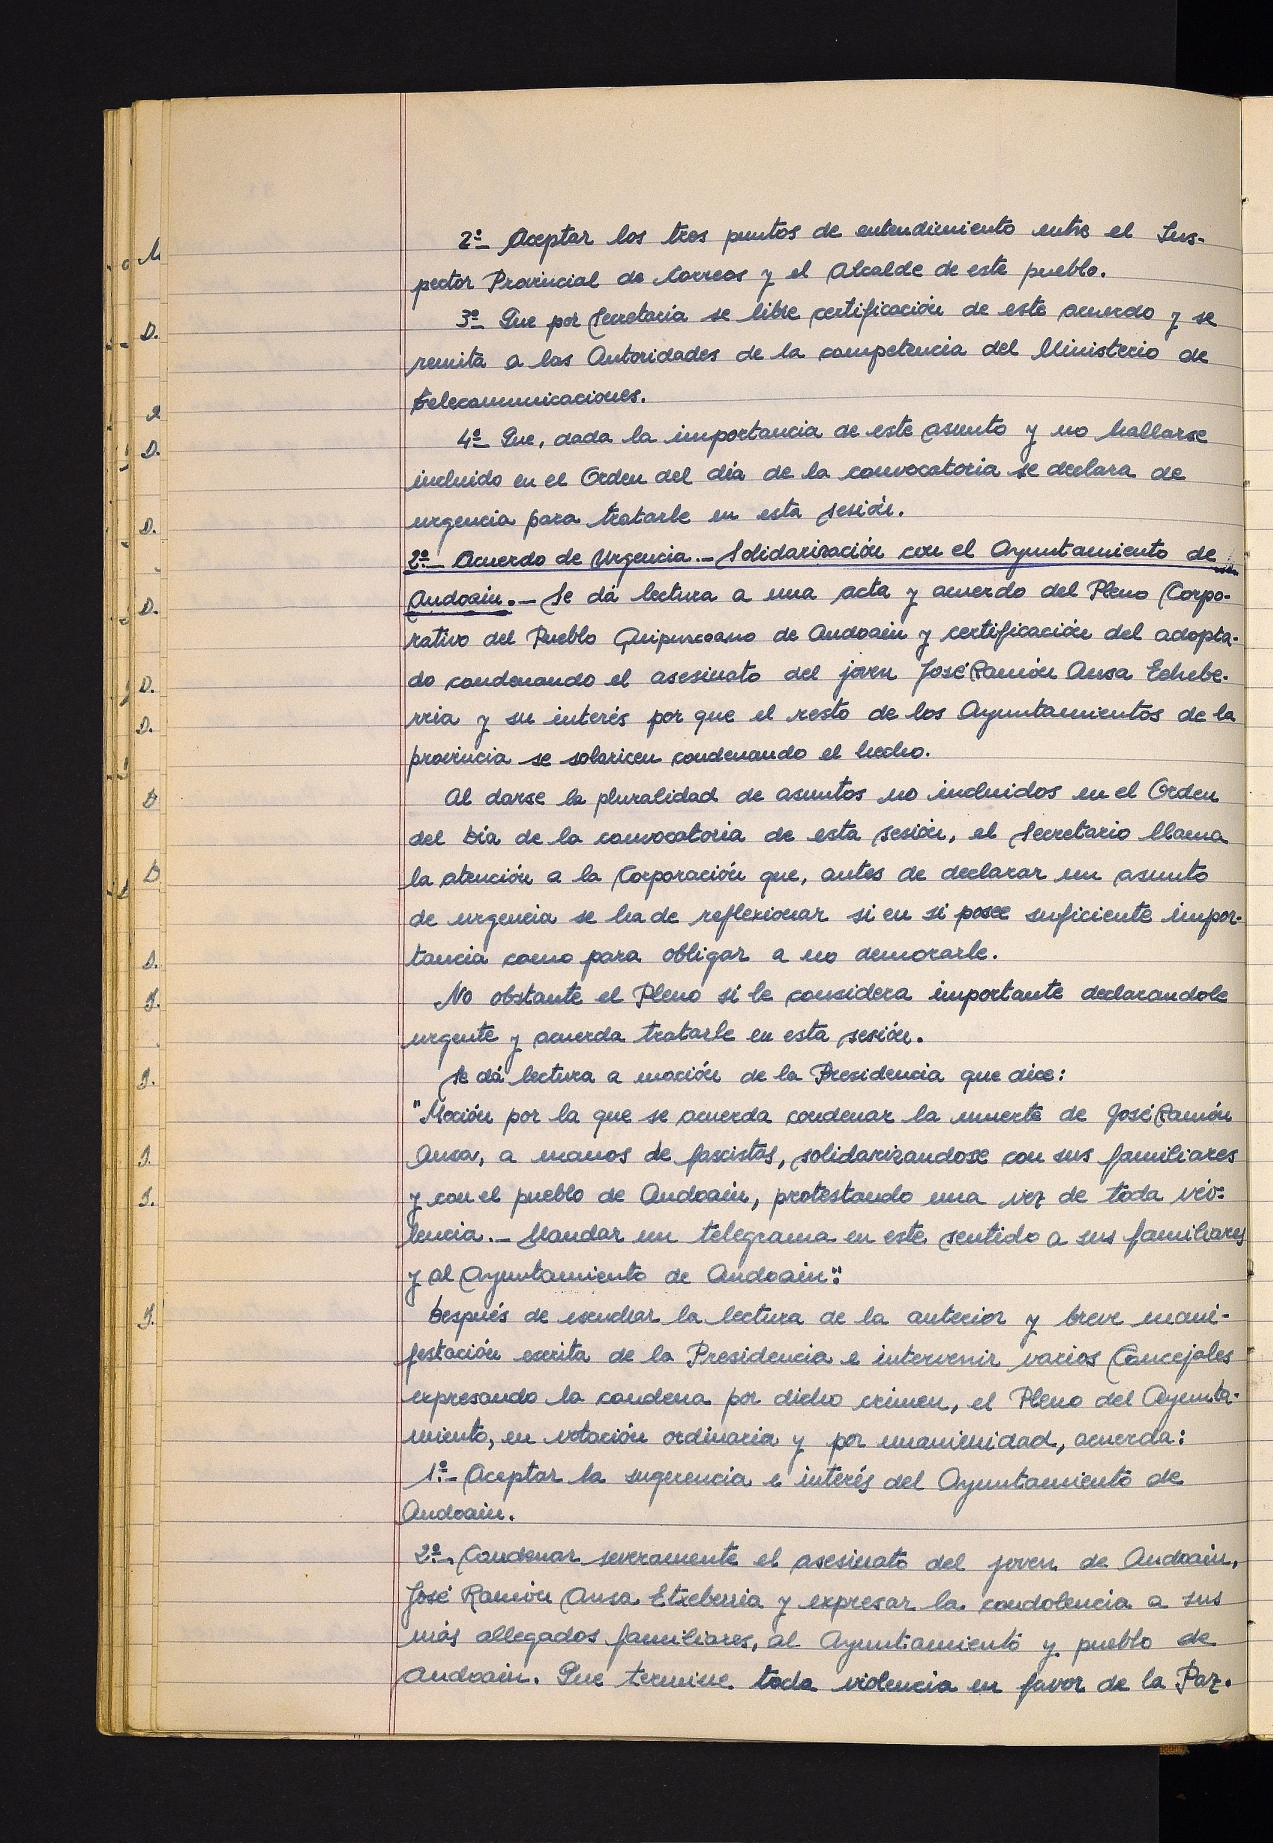 2º- Aceptar los tres puntos de entendimiento entre el Ins-
pector Provincial de Correos y el Alcalde de este pueblo.
3º- Que por Secretaría se libre certificación de este acuerdo y se
remita a las Autoridades de la competencia del Ministerio de
telecomunicaciones.
4º- Que, dada la importancia de este asunto y no hallarse
incluido en el Orden del día de la convocatoria se declara de
urgencia para tratarle en esta sesión.
2º- Acuerdo de Urgencia.- Solidarización con el Ayuntamiento de
Andoain.- Se dá lectura a una acta y acuerdo del Pleno Corpo-
rativo del Pueblo Guipuzcoano de Andoain y certificación del adopta-
do condenando el asesinato del joven José Ramón Ansa Echebe-
rria y su interés por que el resto de los Ayuntamientos de la
provincia se solaricen condenando el hecho.
Al darse la pluralidad de asuntos no incluidos en el Orden
del Día de la convocatoria de esta sesión, el Secretario llama
la atención a la Corporación que, antes de declarar un asunto
de urgencia se ha de reflexionar si en si posee suficiente impor-
tancia como para obligar a no demorarle.
No obstante el Pleno si le considera importante declarandole
urgente y acuerda tratarle en esta sesión.
Se dá lectura a moción de la Presidencia que dice:
"Moción por la que se acuerda condenar la muerte de José Ramón
Ansa, a manos de fascistas, solidarizandose con sus familiares
y con el pueblo de Andoain, protestando una vez de toda vio-
lencia.- Mandar un telegrama en este sentido a sus familiares
y al Ayuntamiento de Andoain".
Después de escuchar la lectura de la anterior y breve mani-
festación escrita de la Presidencia e intervenir varios Concejales
expresando la condena por dicho crimen, el Pleno del Ayunta-
miento, en votación ordinaria y por unanimidad, acuerda:
1º- Aceptar la sugerencia e interés del Ayuntamiento de
Andoain.
2º- Condenar severamente el asesinato del joven de Andoain,
José Ramón Ansa Etxeberria y expresar la condolencia a sus
más allegados familiares, al Ayuntamiento y pueblo de
Andoain. Que termine toda violencia en favor de la Paz.